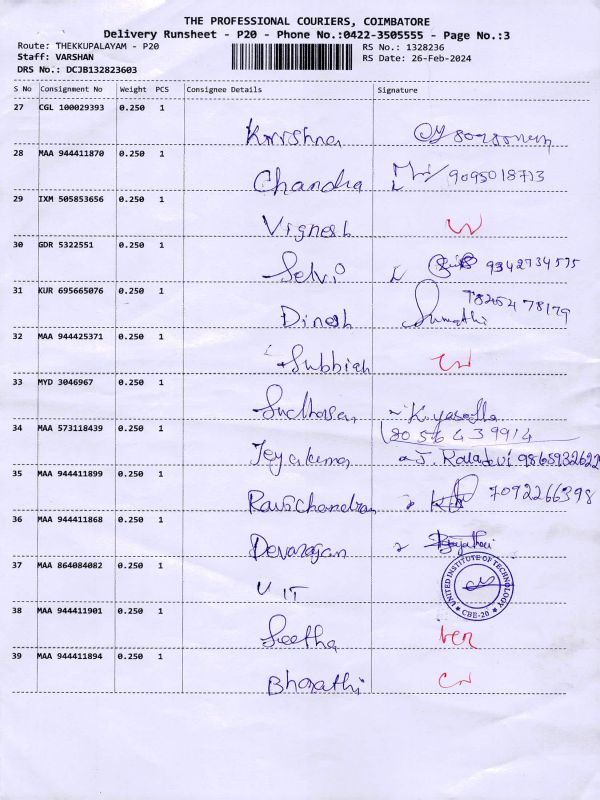 THE PROFESSIONAL COURIERS, COIMBATORE
Delivery Runsheet - P20 - Phone No.:0422-3505555 - Page No.:3
Route: THEKKUPALAYAM - P20 RS No.: 1328236
Staff: VARSHAN RS Date: 26-Feb-2024
DRS No.: DCJB132823603
S No Consignment No Weight PCS Consignee Details Signature
27 CGL 100029393 0.250 1
Krrishna
28 MAA 944411870 0.250 1
Chandra 9095018713
29 IXM 505853656 0.250 1
Vignesh
30 GDR 5322551 0.250 1
Selvi 9342734575
31 KUR 695665076 0.250 1
Dinesh Sumathi
32 MAA 944425371 0.250 1
Subbiah
33 MYD 3046967 0.250 1
Sudharsan
34 MAA 573118439 0.250 1
8056439914
Jeyakumar J. Ramadevi 9865932622
35 MAA 944411899 0.250 1
Ravichandran 7092266398
36 MAA 944411868 0.250 1
Devarajan
37 MAA 864084082 0.250 1
UIT UNITED INSTITUTE OF TECHNOLOGY CBE-20
38 MAA 944411901 0.250 1
Seetha
39 MAA 944411894 0.250 1
Bharathi